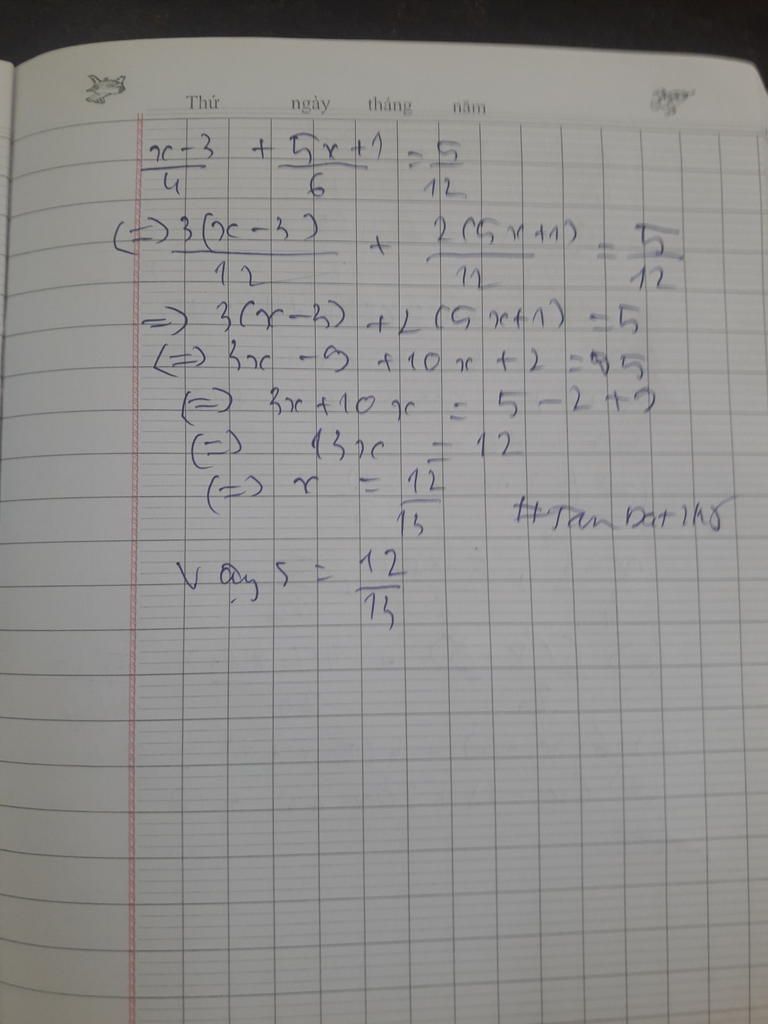 Thứ ngày tháng năm
x-3/4 + 5x+1/6 = 5/12
(=) 3(x-3)/12 + 2(5x+1)/12 = 5/12
=) 3(x-3) + 2(5x+1) = 5
(=) 3x - 9 + 10x + 2 = 5
(=) 3x+10x = 5-2+9
(=) 13x = 12
(=) x = 12/13
Vậy S = 12/13